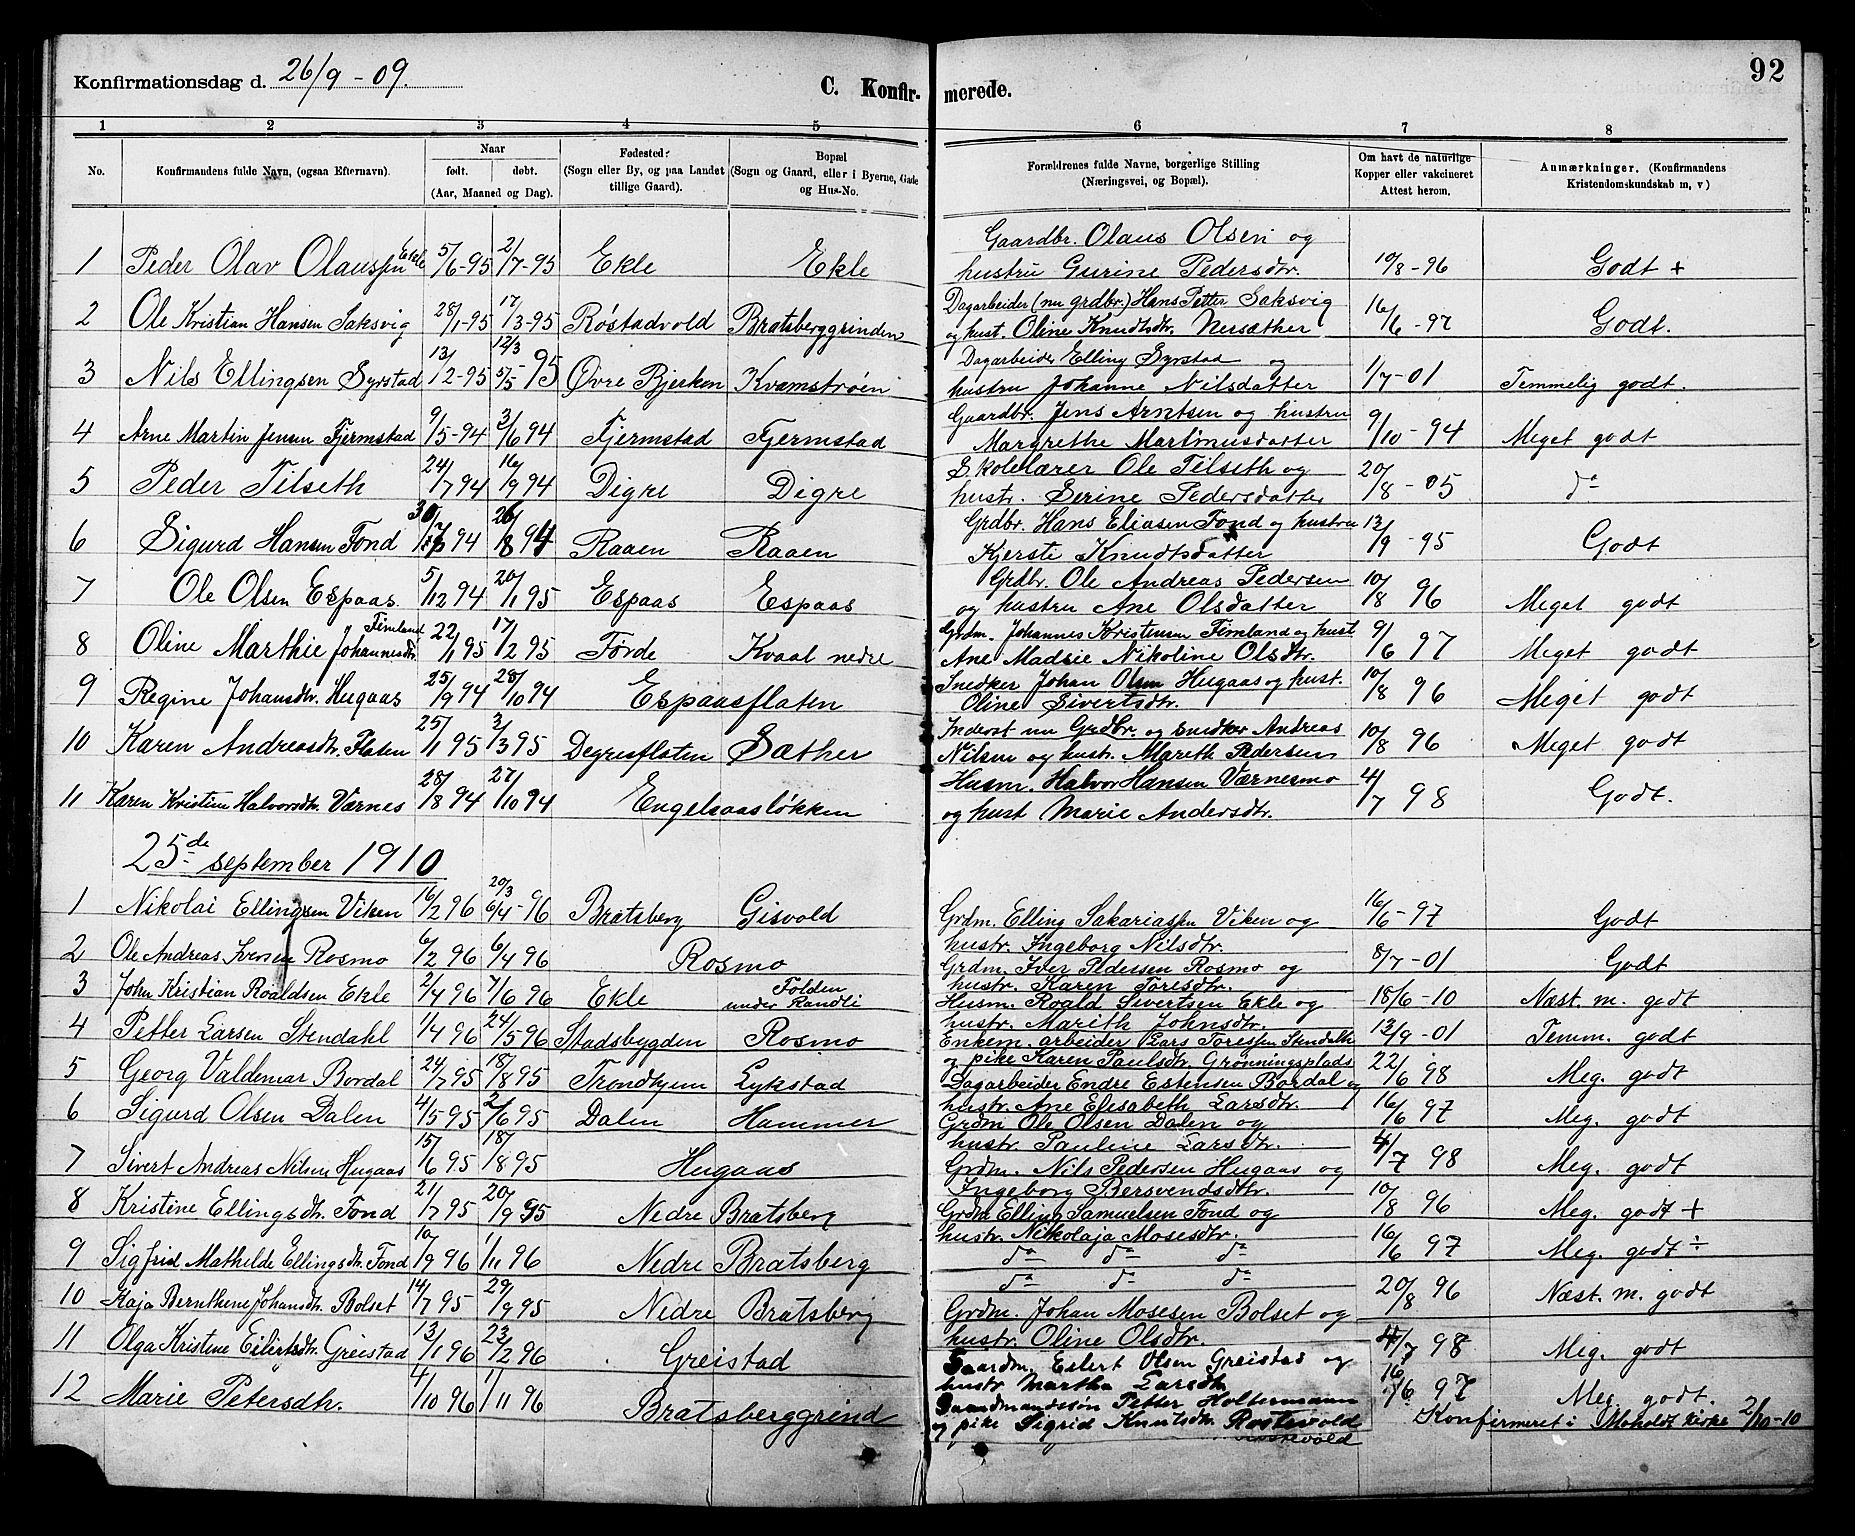 92
Konfirmationsdag d. 26/9 - 09.
C. Konfirmerede.
1 2 3 4 5 6 7 8
No. Konfirmandens fulde Navn, (ogsaa Efternavn). Naar født. døbt. (Aar, Maaned og Dag). Fødested: (Sogn eller By, og paa Landet tillige Gaard). Bopæl (Sogn og Gaard, eller i Byerne, Gade og Hus-No. Forældrenes fulde Navne, borgerlige Stilling (Næringsvei, og Bopæl). Om havt de naturlige Kopper eller vakcineret Attest herom. Anmærkninger. (Konfirmandens Kristendomskundskab m, v)
1 Peder Olav Olaussen Ekle 5/6-95 2/7-95 Ekle Ekle Gaardbr. Olaus Olsen og
hustru Gurine Pedersdtr. 10/8-96 Godt +
2 Ole Kristian Hansen Saksvig 28/1-95 17/3-95 Røstadvold Bratsberggrinden Dagarbeider (nu grdbr.) Hans Petter Saksvig
og hust. Oline Knudtsdtr. Nersæther 16/6-97 Godt.
3 Nils Ellingsen Syrstad 13/2-95 12/3 5/5-95 Øvre Bjerken Kvamstrøen Dagarbeider Elling Syrstad og
hustru Johanne Nilsdatter 1/7-01 Temmelig godt.
4 Arne Martin Jensen Fjermstad 9/5-94 3/6 94 Fjermstad Fjermstad Gaardbr. Jens Arntsen og hustru
Margrethe Martinusdatter 9/10-94 Meget godt
5 Peder Tilseth 24/7 94 16/9 94 Digre Digre Skolelærer Ole Tilseth og
hustr. Serine Pedersdatter 20/8-05 do
6 Sigurd Hansen Fond 30/7 94 26/8 94 Raaen Raaen Grdbr. Hans Eliasen Fond og hustru
Kjerste Knudtsdatter 13/9-95 Godt
7 Ole Olsen Espaas 5/12 94 20/1 95 Espaas Espaas Grdbr. Ole Andreas Pedersen
og hustru Ane Olsdatter 10/8 96 Meget godt
8 Oline Marthie Johannesdtr Fimland 22/1 95 17/2 95 Førde Kvaal nedre Grdm. Johannes Kristensen Fimland og hust
Ane Madsie Nikoline Olsdtr. 9/6 97 Meget godt
9 Regine Johansdtr. Hugaas 25/9 94 28/10 94 Espaasflaten Snedker Johan Olsen Hugaas og hust.
Oline Sivertsdtr. 10/8 96 Meget godt
10 Karen Andreasdtr. Flaten 25/1 95 3/3 95 Degresflaten Sæther Inderst nu Grdbr. og snedker Andreas
Nilsen og hustr. Marith Pedersen 10/8 96 Meget godt
11 Karen Kristine Halvorsdtr. Værnes 28/8 94 27/10 94 Engelsaasløkken Husm. Halvor Hansen Værnesmo
og hust Marie Andersdtr. 4/7 98 Godt.
25de september 1910
1 Nikolai Ellingsen Viken 16/2 96 20/3 6/4-96 Bratsberg Gisvold Grdm. Elling Sakariassen Viken og
hustr. Ingeborg Nilsdtr. 16/6-97 Godt
2 Ole Andreas Iversen Rosmo 6/2 96 6/4 96 Rosmo Grdm. Iver Pedersen Rosmo og
hustr. Karen Toresdtr. 8/7-01 Godt
3 John Kristian Roaldsen Ekle 2/4 96 7/6 96 Ekle Folden under Randli Husm. Roald Sivertsen Ekle og
hustr. Marith Johnsdtr. 18/6-10 Næst. m. godt
4 Petter Larsen Stendahl 1/4 96 24/5 96 Stadsbygden Rosmo Enkem. arbeider Lars Toresen Stendahl
og pike Karen Paulsdtr. Grønningsplads 13/9-01 Temm. godt
5 Georg Valdemar Bordal 24/7 95 18/8 95 Trondhjem Lykstad Dagarbeider Endre Estensen Bordal og
hustr. Ane Elisabeth Larsdtr. 22/6 98 Meg. godt
6 Sigurd Olsen Dalen 4/5 95 2/6 95 Dalen Hammer Grdm Ole Olsen Dalen og
hustr Pauline Larsdtr. 16/6 97 Meg. godt
7 Sivert Andreas Nilsen Hugaas 15/6 95 18/8 95 Hugaas Grdm. Nils Pedersen Hugaas og
Ingeborg Bersvendsdtr. 4/7 98 Meg. godt
8 Kristine Ellingsdtr. Fond 21/7 95 20/9 95 Nedre Bratsberg Grdm Elling Samuelsen Fond og
hustr. Nikolaja Mosesdtr. 10/8 96 Meg. godt +
9 Sigfrid Mathilde Ellingsdtr. Fond 10/9 96 1/11 96 Nedre Bratsberg do do do
do do do 16/6 97 Meg. godt ÷
10 Kaja Bernthene Johansdtr. Bolset 14/7 95 29/9 95 Nedre Bratsberg Grdm. Johan Mosesen Bolset og
hustr. Oline Olsdtr. 20/8 96 Næst. m. godt
11 Olga Kristine Eilertsdtr. Greistad 13/1 96 23/2 96 Greistad Gaardm. Eilert Olsen Greistad og
hustr Martha Larsdtr. 4/7 98 Meg. godt
12 Marie Petersdtr. 4/10 96 1/11 96 Bratsberggrind Gaardmandssøn Petter Holtermann
og pike Sigrid Knutsdtr. Rostevold 16/6 97 Meg. godt.
Konfirmeret i Moholdt kirke 2/10-10